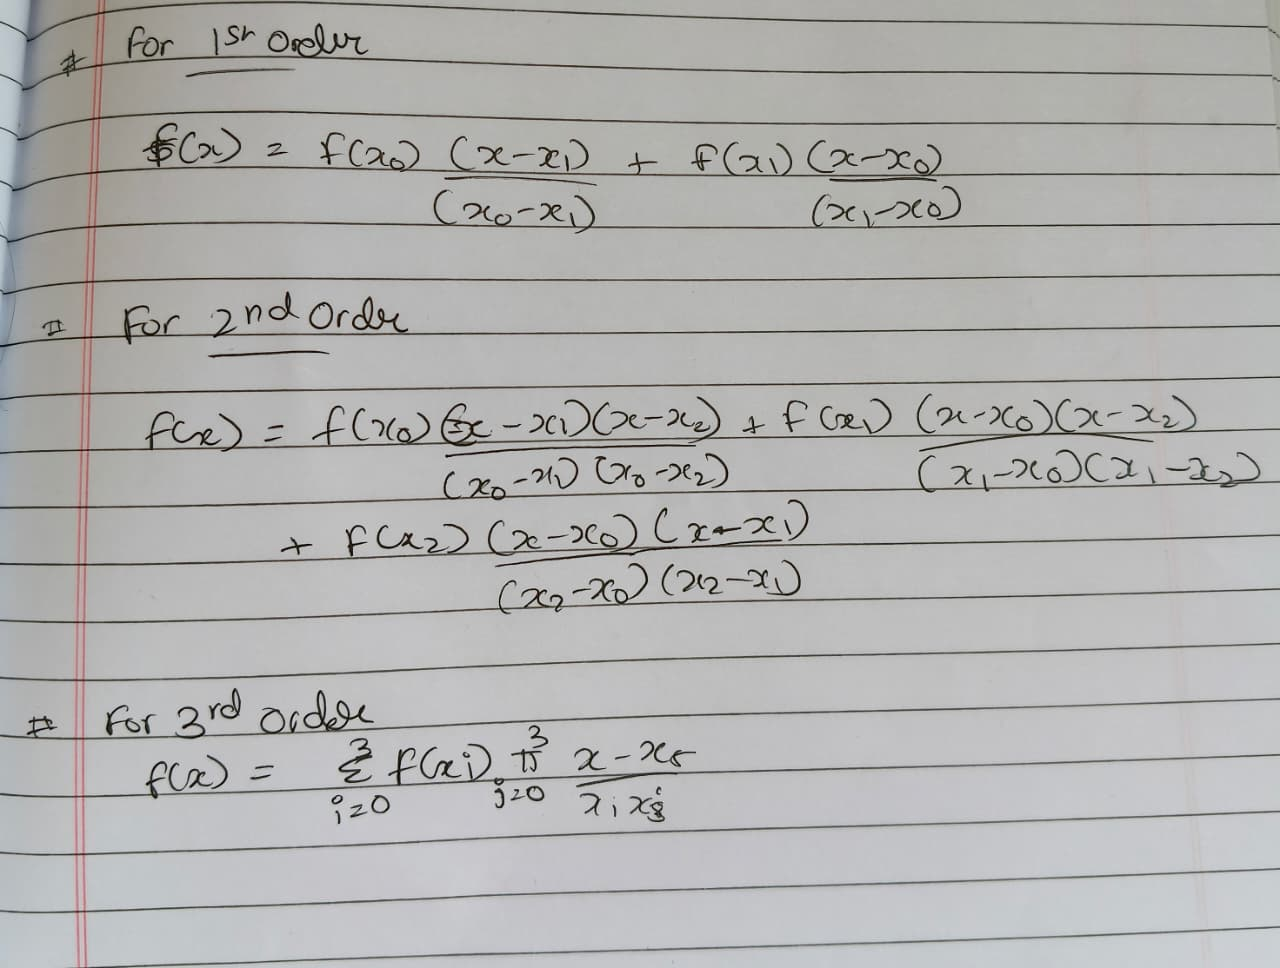 # For 1st Order
f(x) = f(x₀) (x-x₁)/(x₀-x₁) + f(x₁) (x-x₀)/(x₁-x₀)
# For 2nd Order
f(x) = f(x₀) (x-x₁)(x-x₂)/(x₀-x₁)(x₀-x₂) + f(x₁) (x-x₀)(x-x₂)/(x₁-x₀)(x₁-x₂)
+ f(x₂) (x-x₀)(x-x₁)/(x₂-x₀)(x₂-x₁)
# For 3rd Order
f(x) = Σ³ᵢ₌₀ f(xi) π³ⱼ₌₀ x-xⱼ/xᵢxⱼ